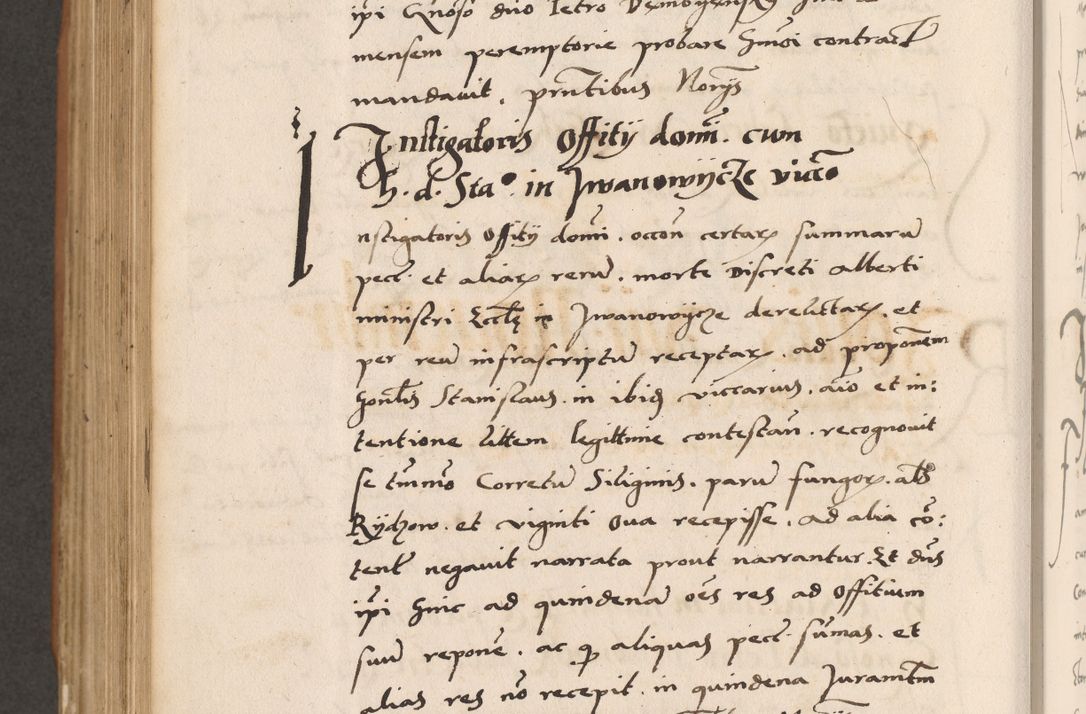 ipi Gnoso dno Petro
mensem peremptorie probare hmoi contract
mandavit. pntibus Norijs
Instigatoris Offitij domi. cum
h. d. Sta°. in Jwanowijcze vicco
nstigatoris offitij domi. occon certarz summarum
pecc. et aliarz rerum. morte Discreti alberti
ministri Eccle in Jwanowijcze derelictarz. et
per reum infrascriptum receptarz. ad proponem
honlis Stanislaus. in ibid viccarius. aio et in:
tentione litem legittime contestan. recognovit
se tmmo Corretum Siliginis. parum fungorz. als
Rydzow. et viginti ova recepisse. ad alia co:
tent negavit narrata prout narrantur. Et dns
ipi hinc ad quindenam oes res ad offitium
suum repone. ac q aliquas pecc. sumas. et
alias res no recepit. in quindena Juramtm